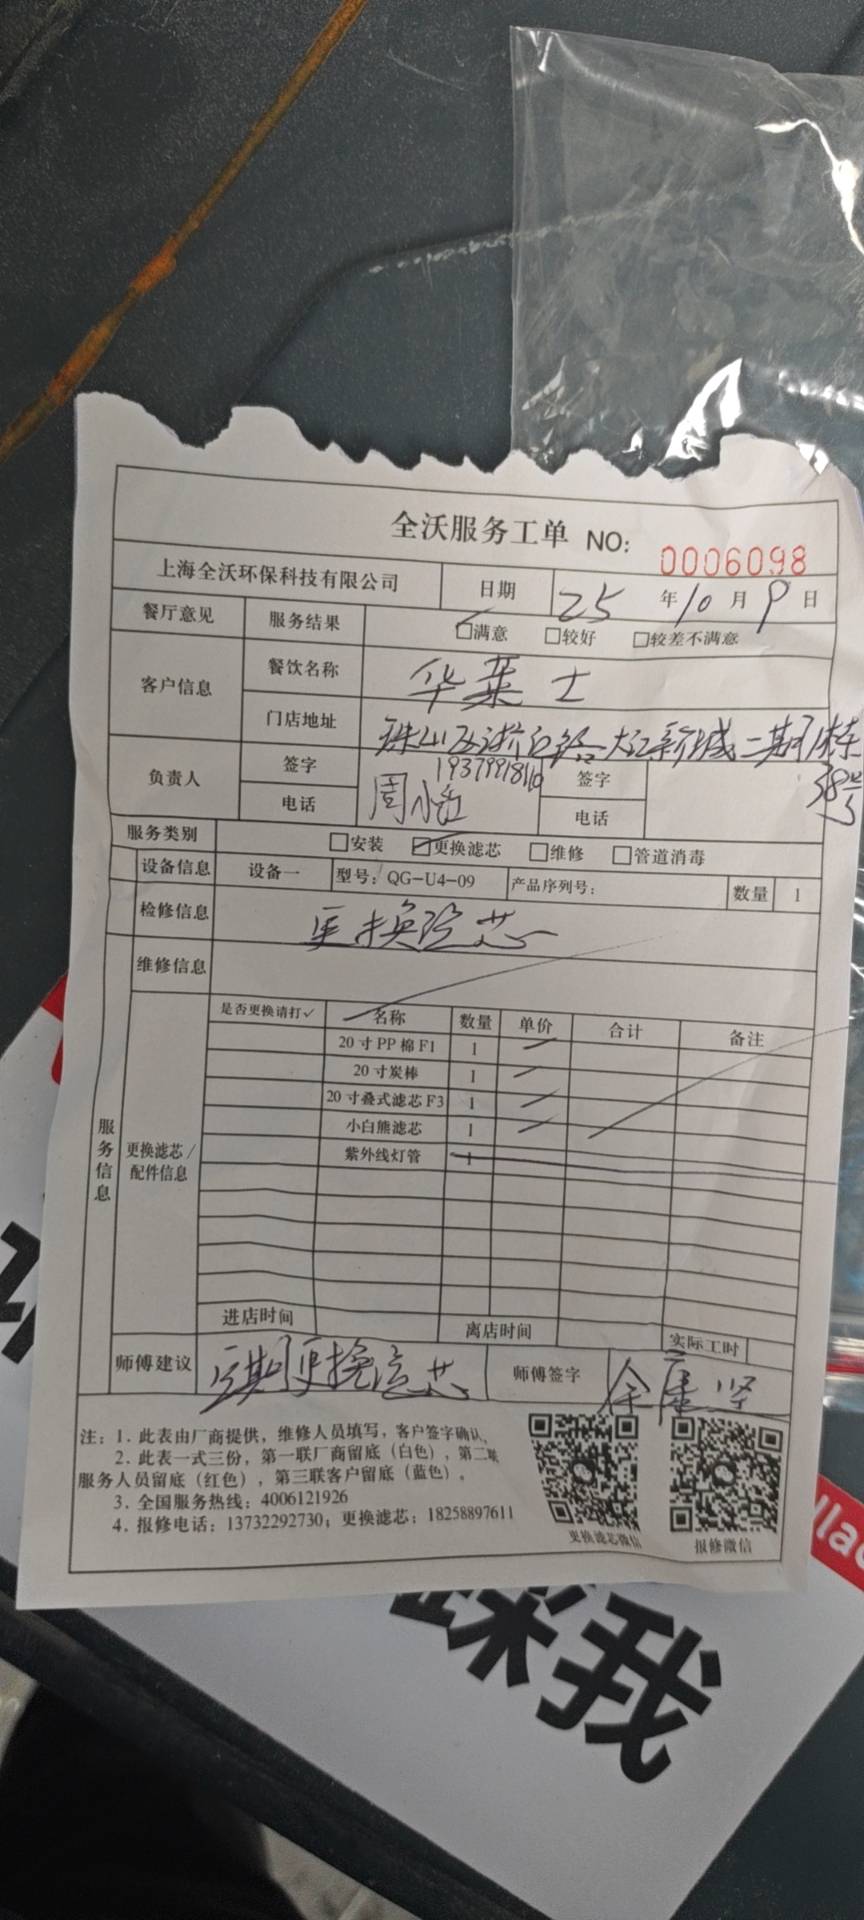 全沃服务工单 NO: 0006098
上海全沃环保科技有限公司 日期 25 年 10 月 9 日
餐厅意见 服务结果 □满意 □较好 □较差不满意
客户信息 餐饮名称 华莱士
门店地址 珠山区浙江路 大江新城二期 栋
38号
负责人 签字 周小 签字
电话 电话
服务类别 □安装 □更换滤芯 □维修 □管道消毒
设备信息 设备一 型号: QG-U4-09 产品序列号: 数量 1
检修信息 更换滤芯
维修信息
服务信息
更换滤芯/
配件信息
是否更换请打✓ 名称 数量 单价 合计 备注
20寸PP棉F1 1
20寸炭棒 1
20寸叠式滤芯F3 1
小白熊滤芯 1
紫外线灯管 1
进店时间 离店时间 实际工时
师傅建议 定期更换滤芯 师傅签字 余 坚
注: 1. 此表由厂商提供, 维修人员填写, 客户签字确认。
2. 此表一式三份, 第一联厂商留底 (白色), 第二联
服务人员留底 (红色), 第三联客户留底 (蓝色)。
3. 全国服务热线: 4006121926
4. 报修电话: 13732292730; 更换滤芯: 18258897611
更换滤芯微信 报修微信
踩我